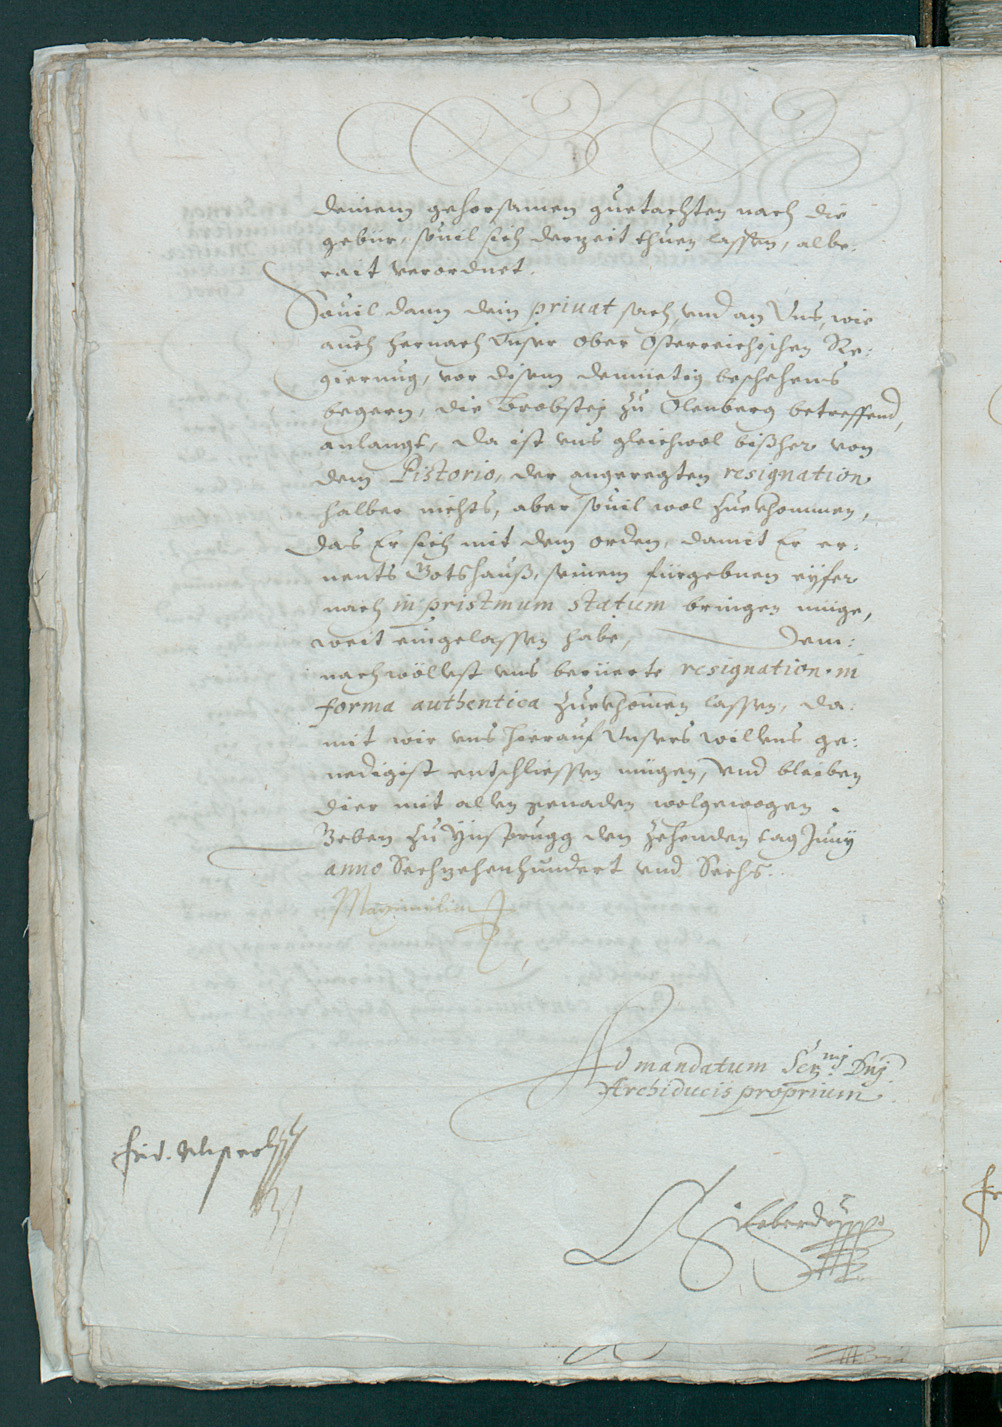 deinem gehorsamen guetachten nach die
gebür, souil sich derzeit thuen lassen, albe:
rait verordnet.
Souil dann dein priuat sach, vnd an Vns, wie
auch hernach Vnser Ober Österreichischen Re:
gierung, vor disem demüetig beschehens
begern, die Brobstej zu Ölenberg betreffend,
anlangt, da ist vns gleichwol bißher von
dem Pistorio, der angeregten resignation
halber nichts, aber souil wol zuekhommen,
das Er sich mit dem orden, damit Er er:
nents Gotshauß, seinem fürgebnem eyfer
nach in pristinum statum bringen müge,
weit eingelassen habe, Dem:
nach wöllest vns berüerte resignation in
forma authentica zuekhomen lassen, da:
mit wir vns hierauf Vnsers willens ge:
nedigist entschliessen mügen, Vnd bleiben
dier mit allen genaden wolgewogen.
Geben zu Ynsprugg den zehenden tag Junÿ
anno Sechzehenhundert vnd Sechs.
Maximilian
Ad mandatum Sermj Dnj
Archiducis proprium
Frid.